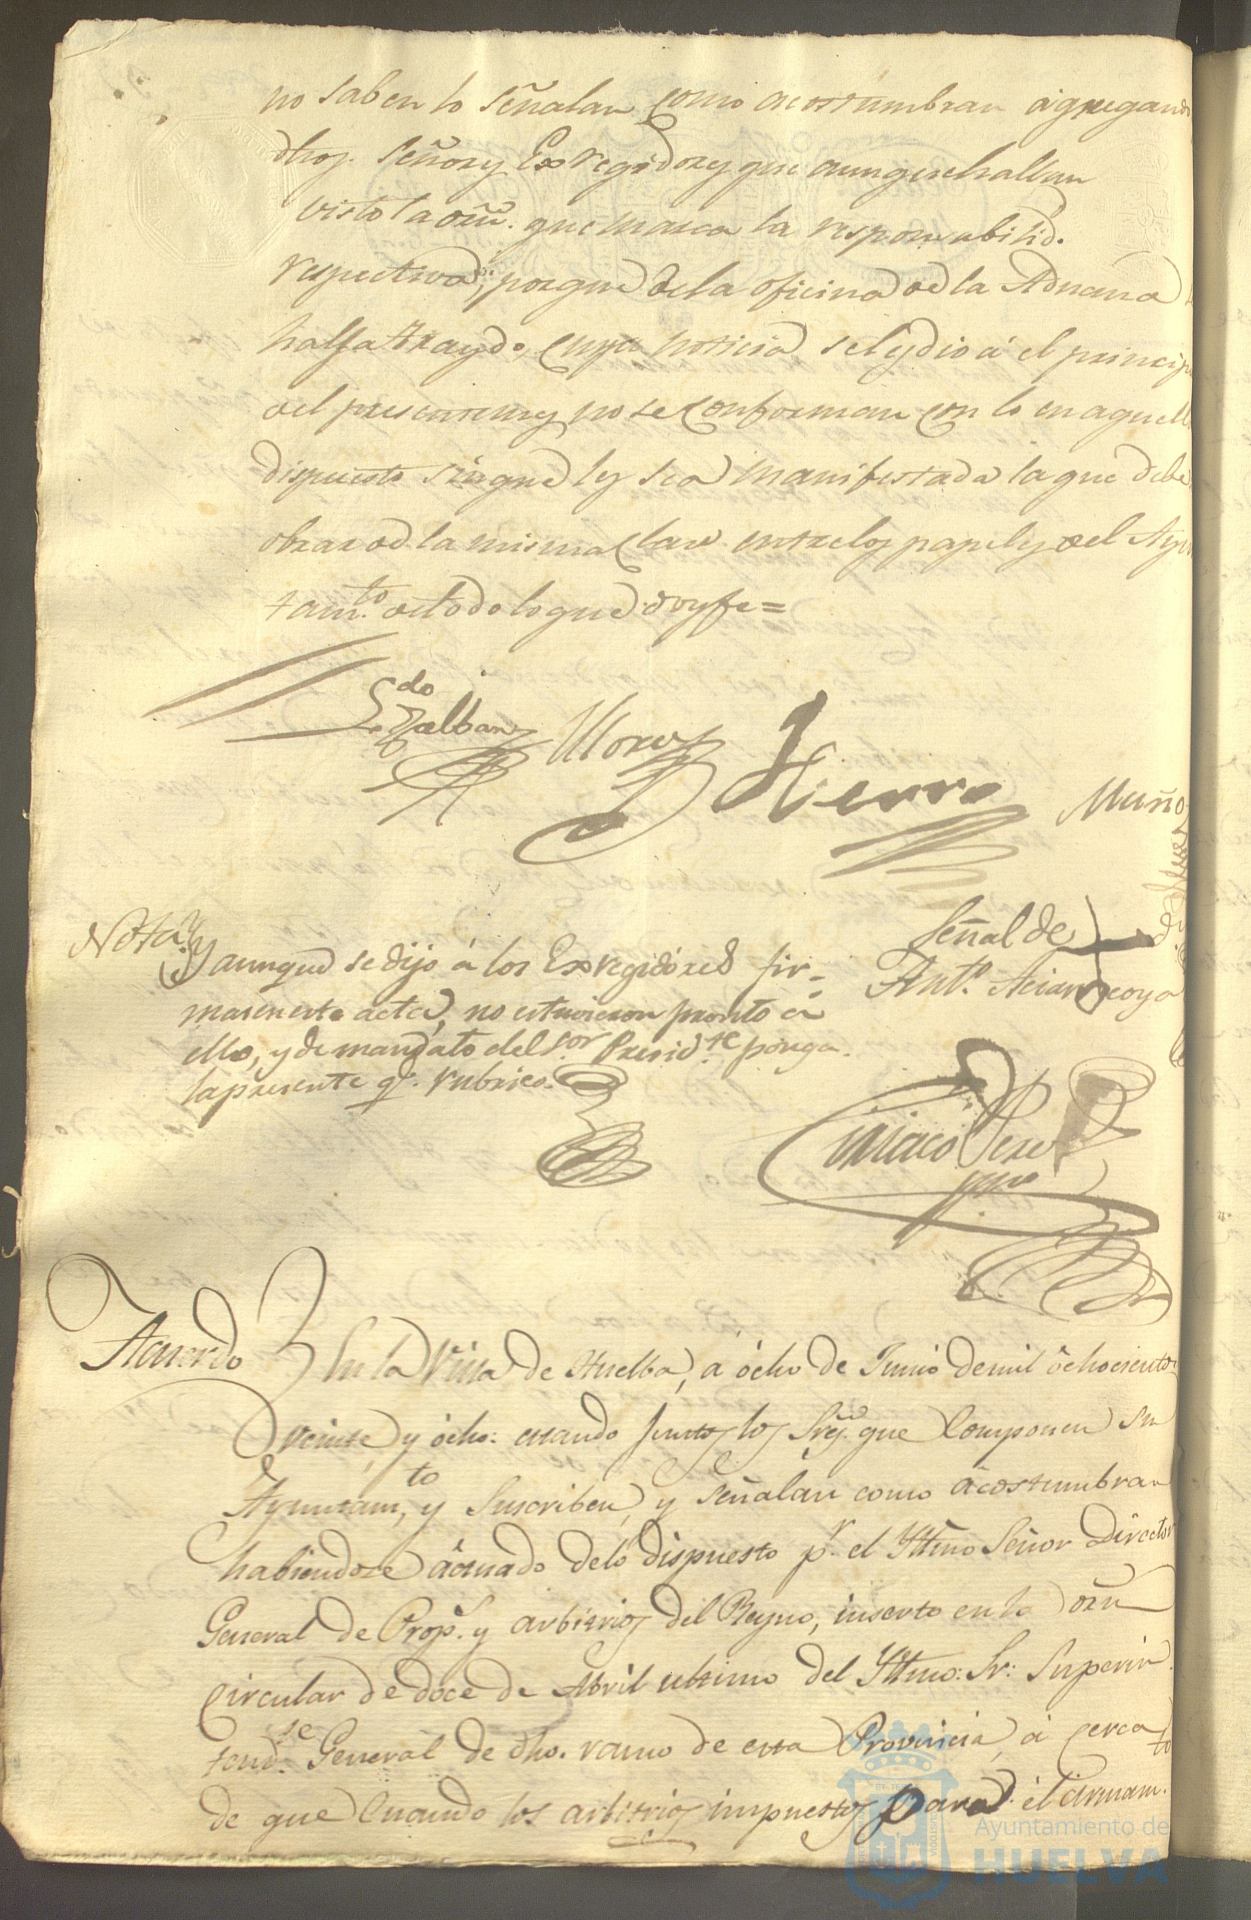 no saben lo señalan como acostumbran agregando
dhos. Señores Exregidores que aunque hallan
visto la orn. que marca la responsabilid.
respectiva, porque de la oficina de la Aduana
halla traydo, cuya noticia se les dio á el princip
del presente mes no se conforman con lo en aquella
dispuesto sin que les sea manifestada la que debe
obrar de la misma clase entre los papeles del Ayun
tam.to de todo lo que doy fe =
L.do Galban
Hierro
Muño
Señal de
Ant.o
Nota
Y aunque se dijo á los Exregidores fir=
masen esta acta, no estuvieron pronto á
ello, y de mandato del S.or Presid.te pongo
la presente q.e rubrico.
Ciriaco Perez
Acuerdo
En la Villa de Huelba, á ócho de Junio de mil ôchociento
veinte y ócho: estando juntos los Sres. que componen su
Ayuntam.to, y suscriben, y señalan como acostumbran
habiendose actuado de lo dispuesto p.r el Yltmo Señor Director
General de Prop.s y arbitrios del Reyno, inserto en la Orn
circular de doce de Abril ultimo del Yltmo: Sr: Superin
tend.te General de dho. ramo de esta Provincia, á cerca
de que cuando los arbitrios impuestos para el armam.to
Ayuntamiento de
HUELVA